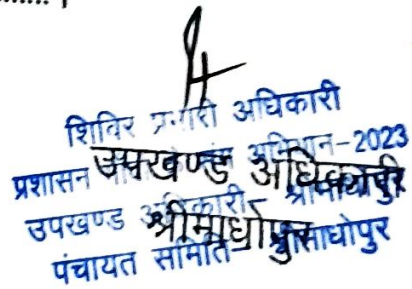 शिविर प्रभारी अधिकारी
प्रशासन अभियान-2023
उपखण्ड अधिकारी
उपखण्ड अधिकारी-
श्रीमाधोपुर
पंचायत समिति श्रीमाधोपुर